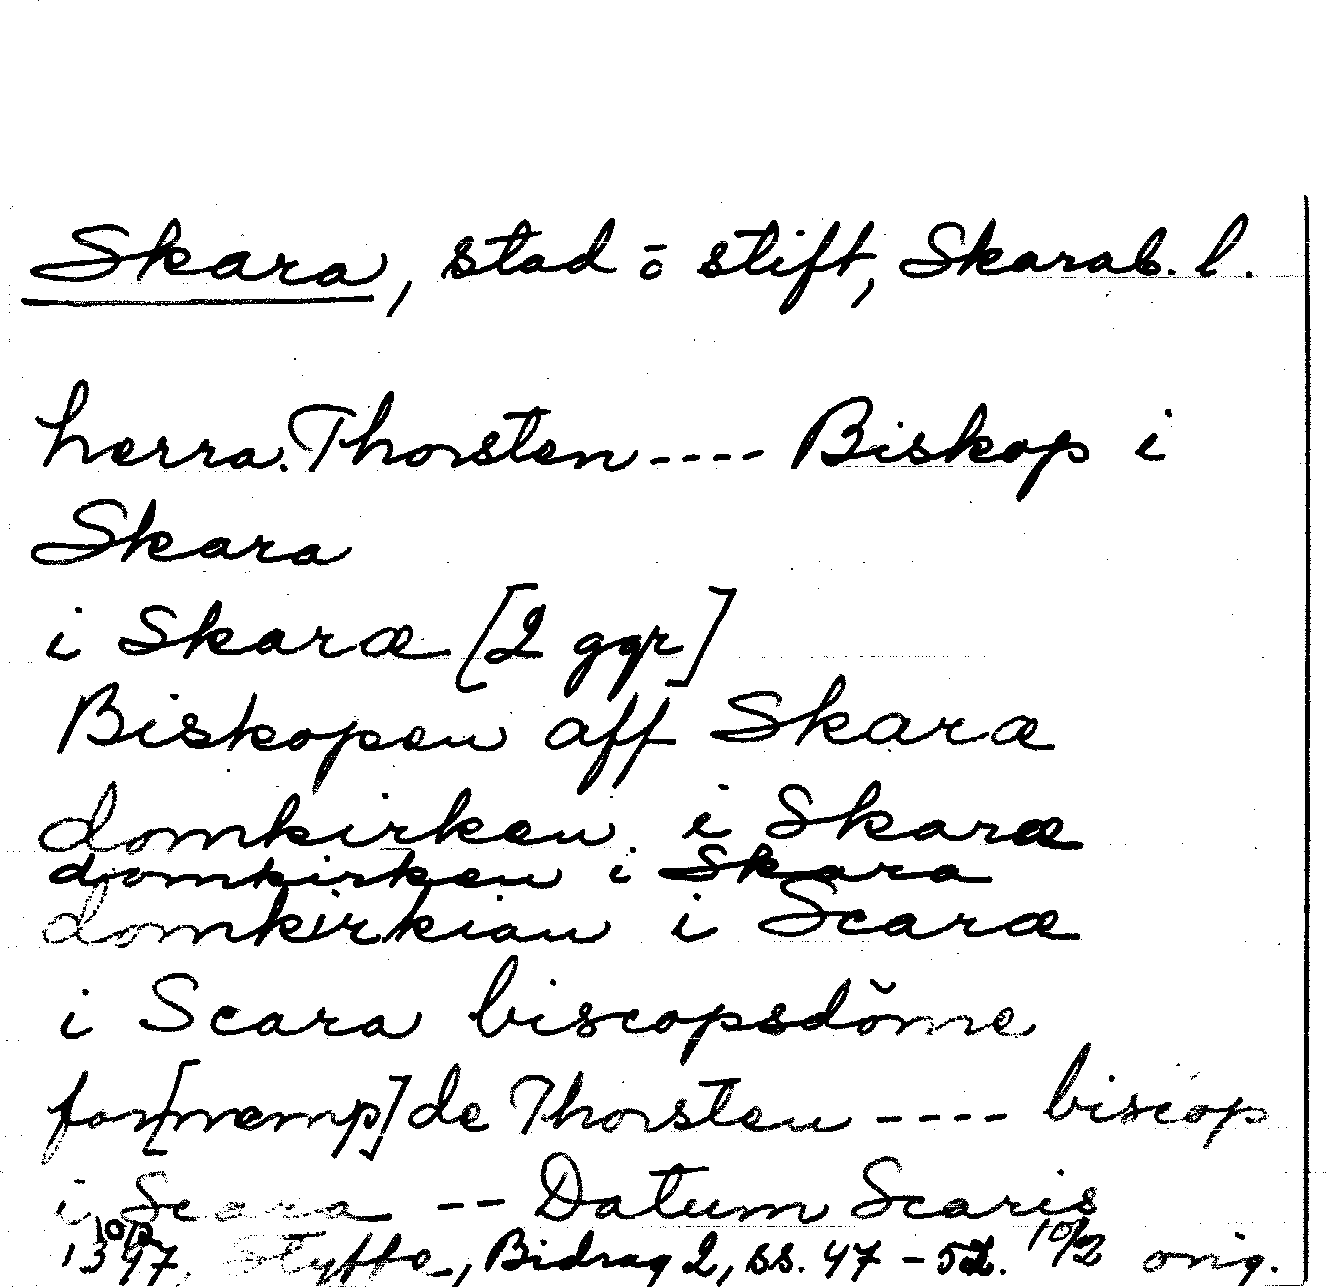 Skara, stad o stift, Skarab. l.
herra. Thorsten ---- Biskop i
Skara
i Skaræ [2 ggr]
Biskopen aff Skaræ
domkirken i Skaræ
domkirken i Skara
domkirkian i Scaræ
i Scara biscopsdŏme
for[nemp]de Thorsten ---- biscop
i Scara -- Datum Scaris
1397. Styffe, Bidrag 2, ss. 47-52. 10/2 orig.